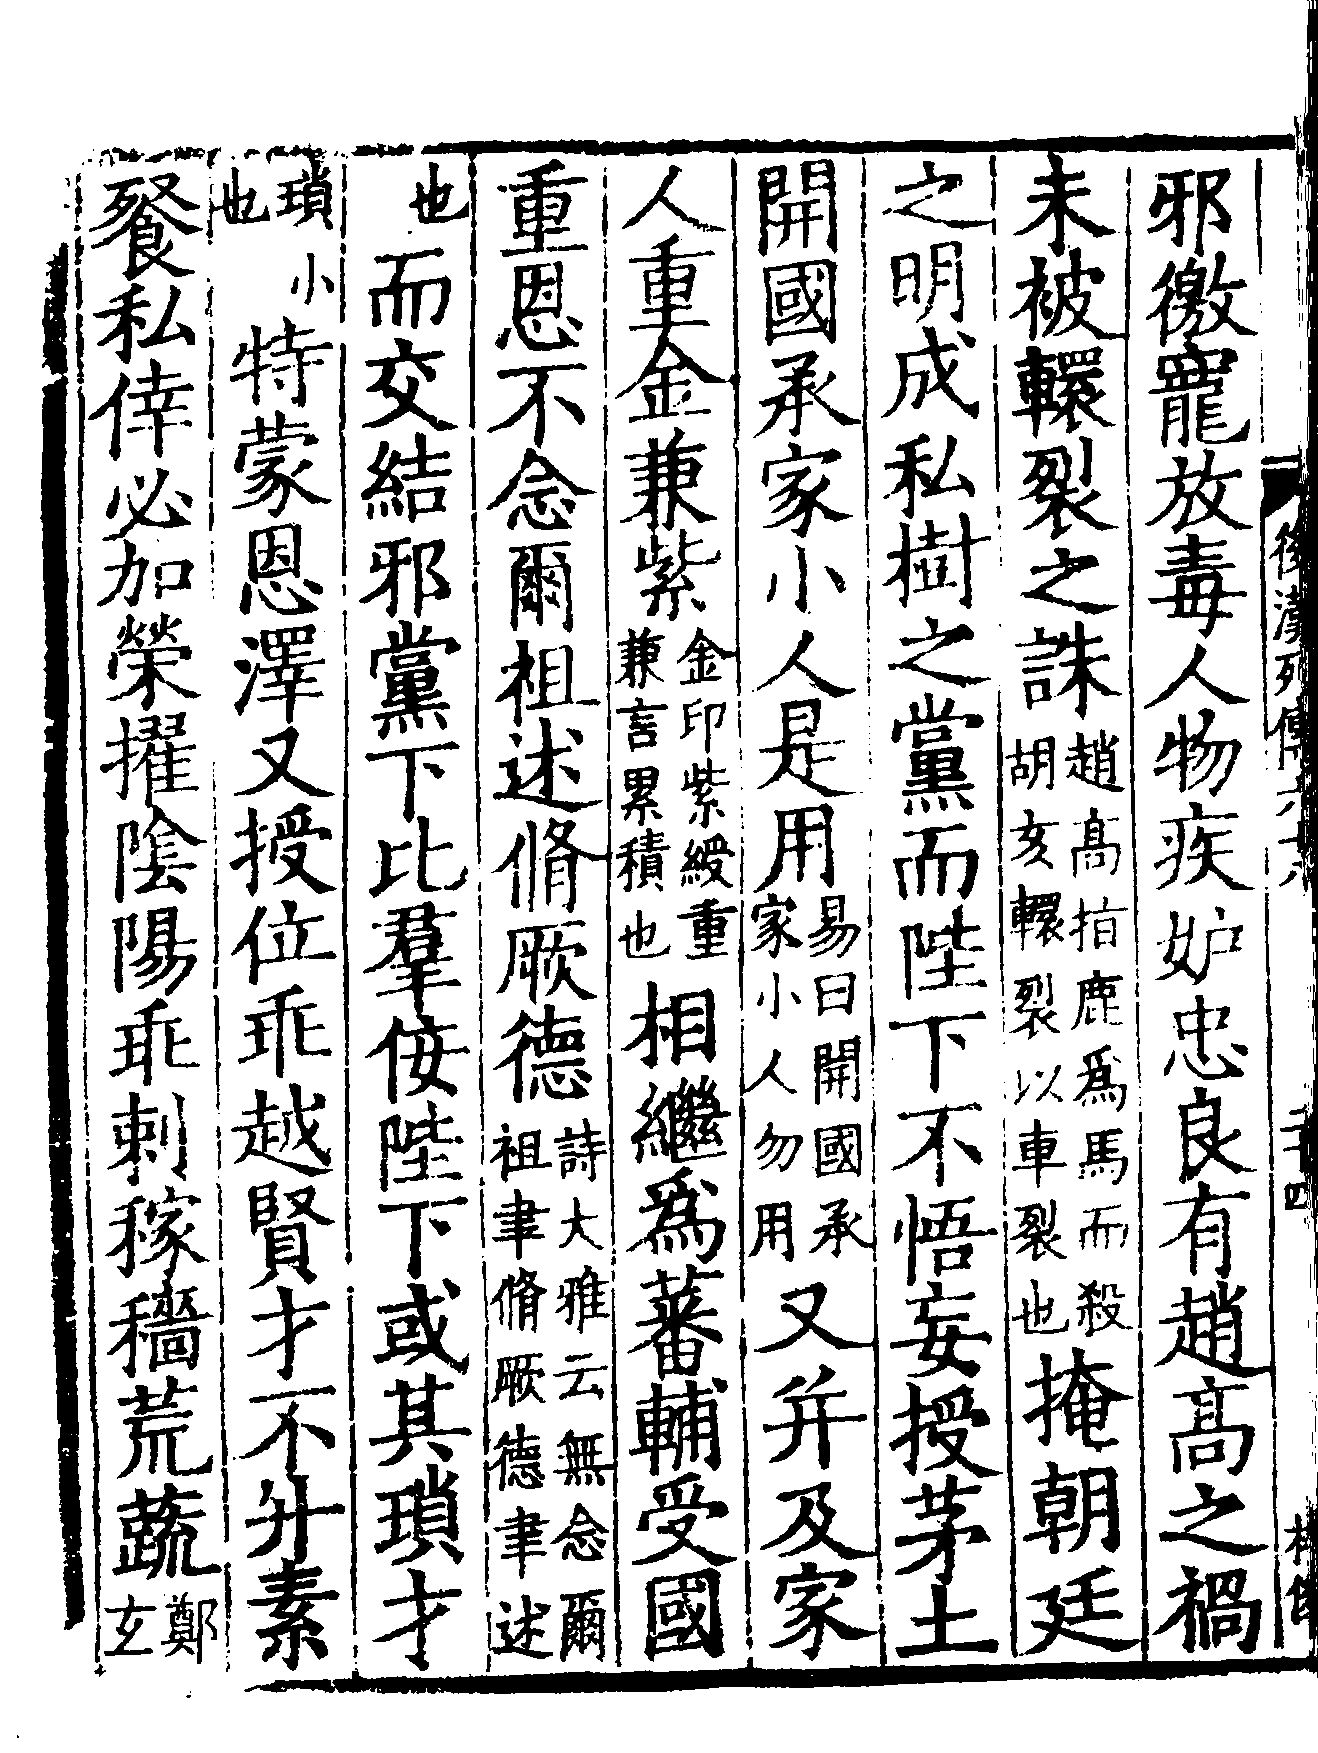 後漢列傳六十八
二十四
邪徼寵放毒人物疾妒忠良有趙高之禍
未被轘裂之誅趙高指鹿爲馬而殺胡亥轘裂以車裂也掩朝廷
之明成私樹之黨而陛下不悟妄授茅土
開國承家小人是用易曰開國承家小人勿用又并及家
人重金兼紫金印紫綬重兼言累積也相繼爲蕃輔受國
重恩不念爾祖述脩厥德詩大雅云無念爾祖聿脩厥德聿述
也而交結邪黨下比羣佞陛下或其瑣才
瑣小也特蒙恩澤又授位乖越賢才不升素
餐私倖必加榮擢陰陽乖剌稼穡荒蔬鄭玄